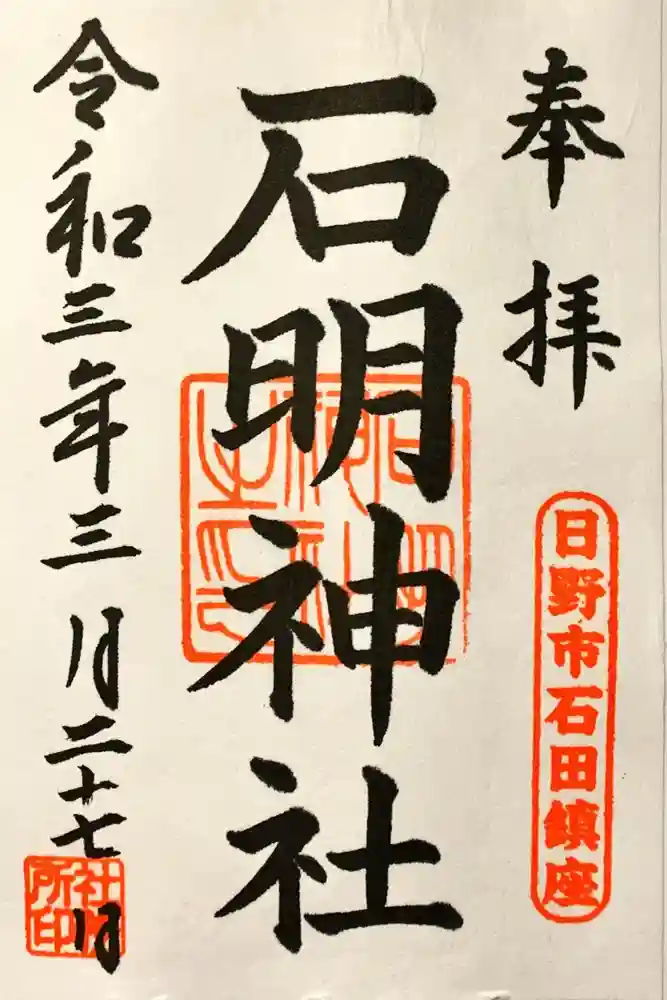 奉拝
日野市石田鎮座
石明神社
令和三年三月二十七日